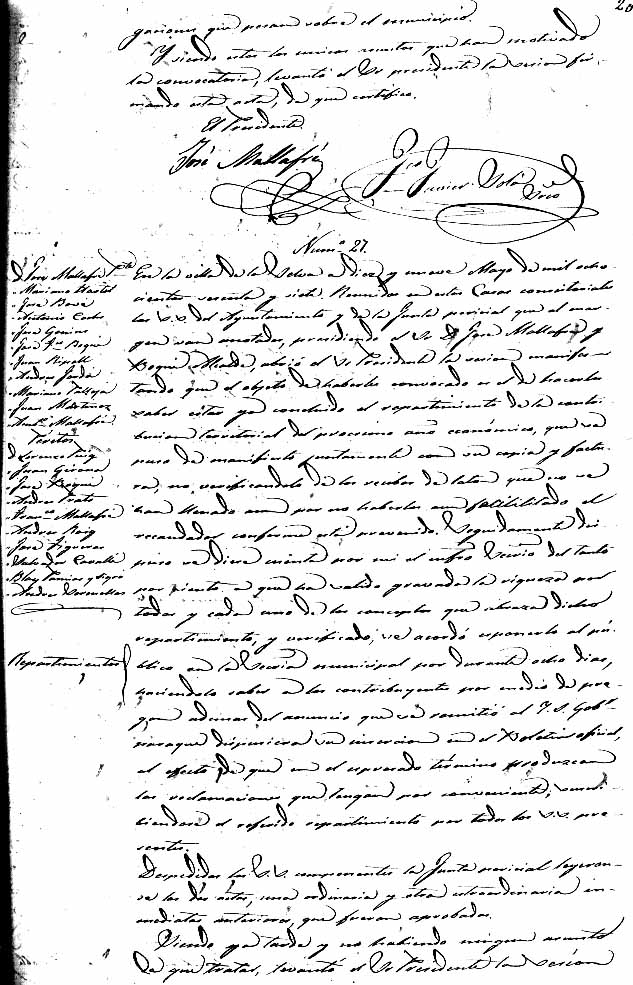 20
gaciones que pesan sobre el municipio.
Y siendo estos los unicos asuntos que han motivado
la convocatoria, levantó el Sr presidente la sesion fir-
mando esta acta, de que certifico.
El Presidente
José Mallafré
Fco Javier Solá
Srio
Numº 27.
D. José Mallafré Pte
Mariano
José Bové
Antonio
José
José Fco Roqué
Juan Ripoll
Andres
Mariano
Juan Martinez
Antº Mallafré
Peritos
D. Lorenzo Puig
Juan Girona
José Roqué
Andres Prats
Franco Mallafré
Andres Roig
José Figueras
Salvador Cavallé
Blay
Andres
Repartimientos
En la villa de la Selva a diez y nueve Mayo de mil ocho-
cientos sesenta y siete. Reunidos en estas Casas consistoriales
los S.S. del Ayuntamiento y de la Junta pericial que al mar-
gen van anotados, presididos el Sr D. José Mallafré y
Roqué Alcalde, abrió el Sr Presidente la sesion manifes-
tando que el objeto de haberles convocado es el de hacerles
saber estar ya concluido el repartimiento de la contri-
bucion territorial del procsimo año económico, que se
puso de manifiesto juntamente con su copia y factu-
ra, no verificandolo de los recibos de talon que no se
han llenado aun por no haberlos aun facilitado el
recaudador conforme está prevenido. Seguidamente dis-
puso se diera cuenta por mi el infro Secrio del tanto
por ciento a que ha salido gravada la riqueza por
todos y cada uno de los conceptos que abraza dicho
repartimiento, y verificado, se acordó esponerlo al pú-
blico en la Secria municipal por durante ocho dias,
haciendolo saber a los contribuyentes por medio de pre-
gon ademas del anuncio que se remitió al Y. S. Gobr
para que dispusiera su insercion en el Boletin oficial,
al efecto de que en el espresado término produzcan
las reclamaciones que tengan por conveniente,
el referido repartimiento por todos los S.S. pre-
sentes.
Despedidos los S.S. componentes la Junta pericial leyeron-
se las dos actas, una ordinaria y otra estraordinaria in-
mediatas anteriores, que fueron aprobadas.
Siendo ya tarde y no habiendo ningun asunto
de que tratar, levantó el Sr Presidente la sesion